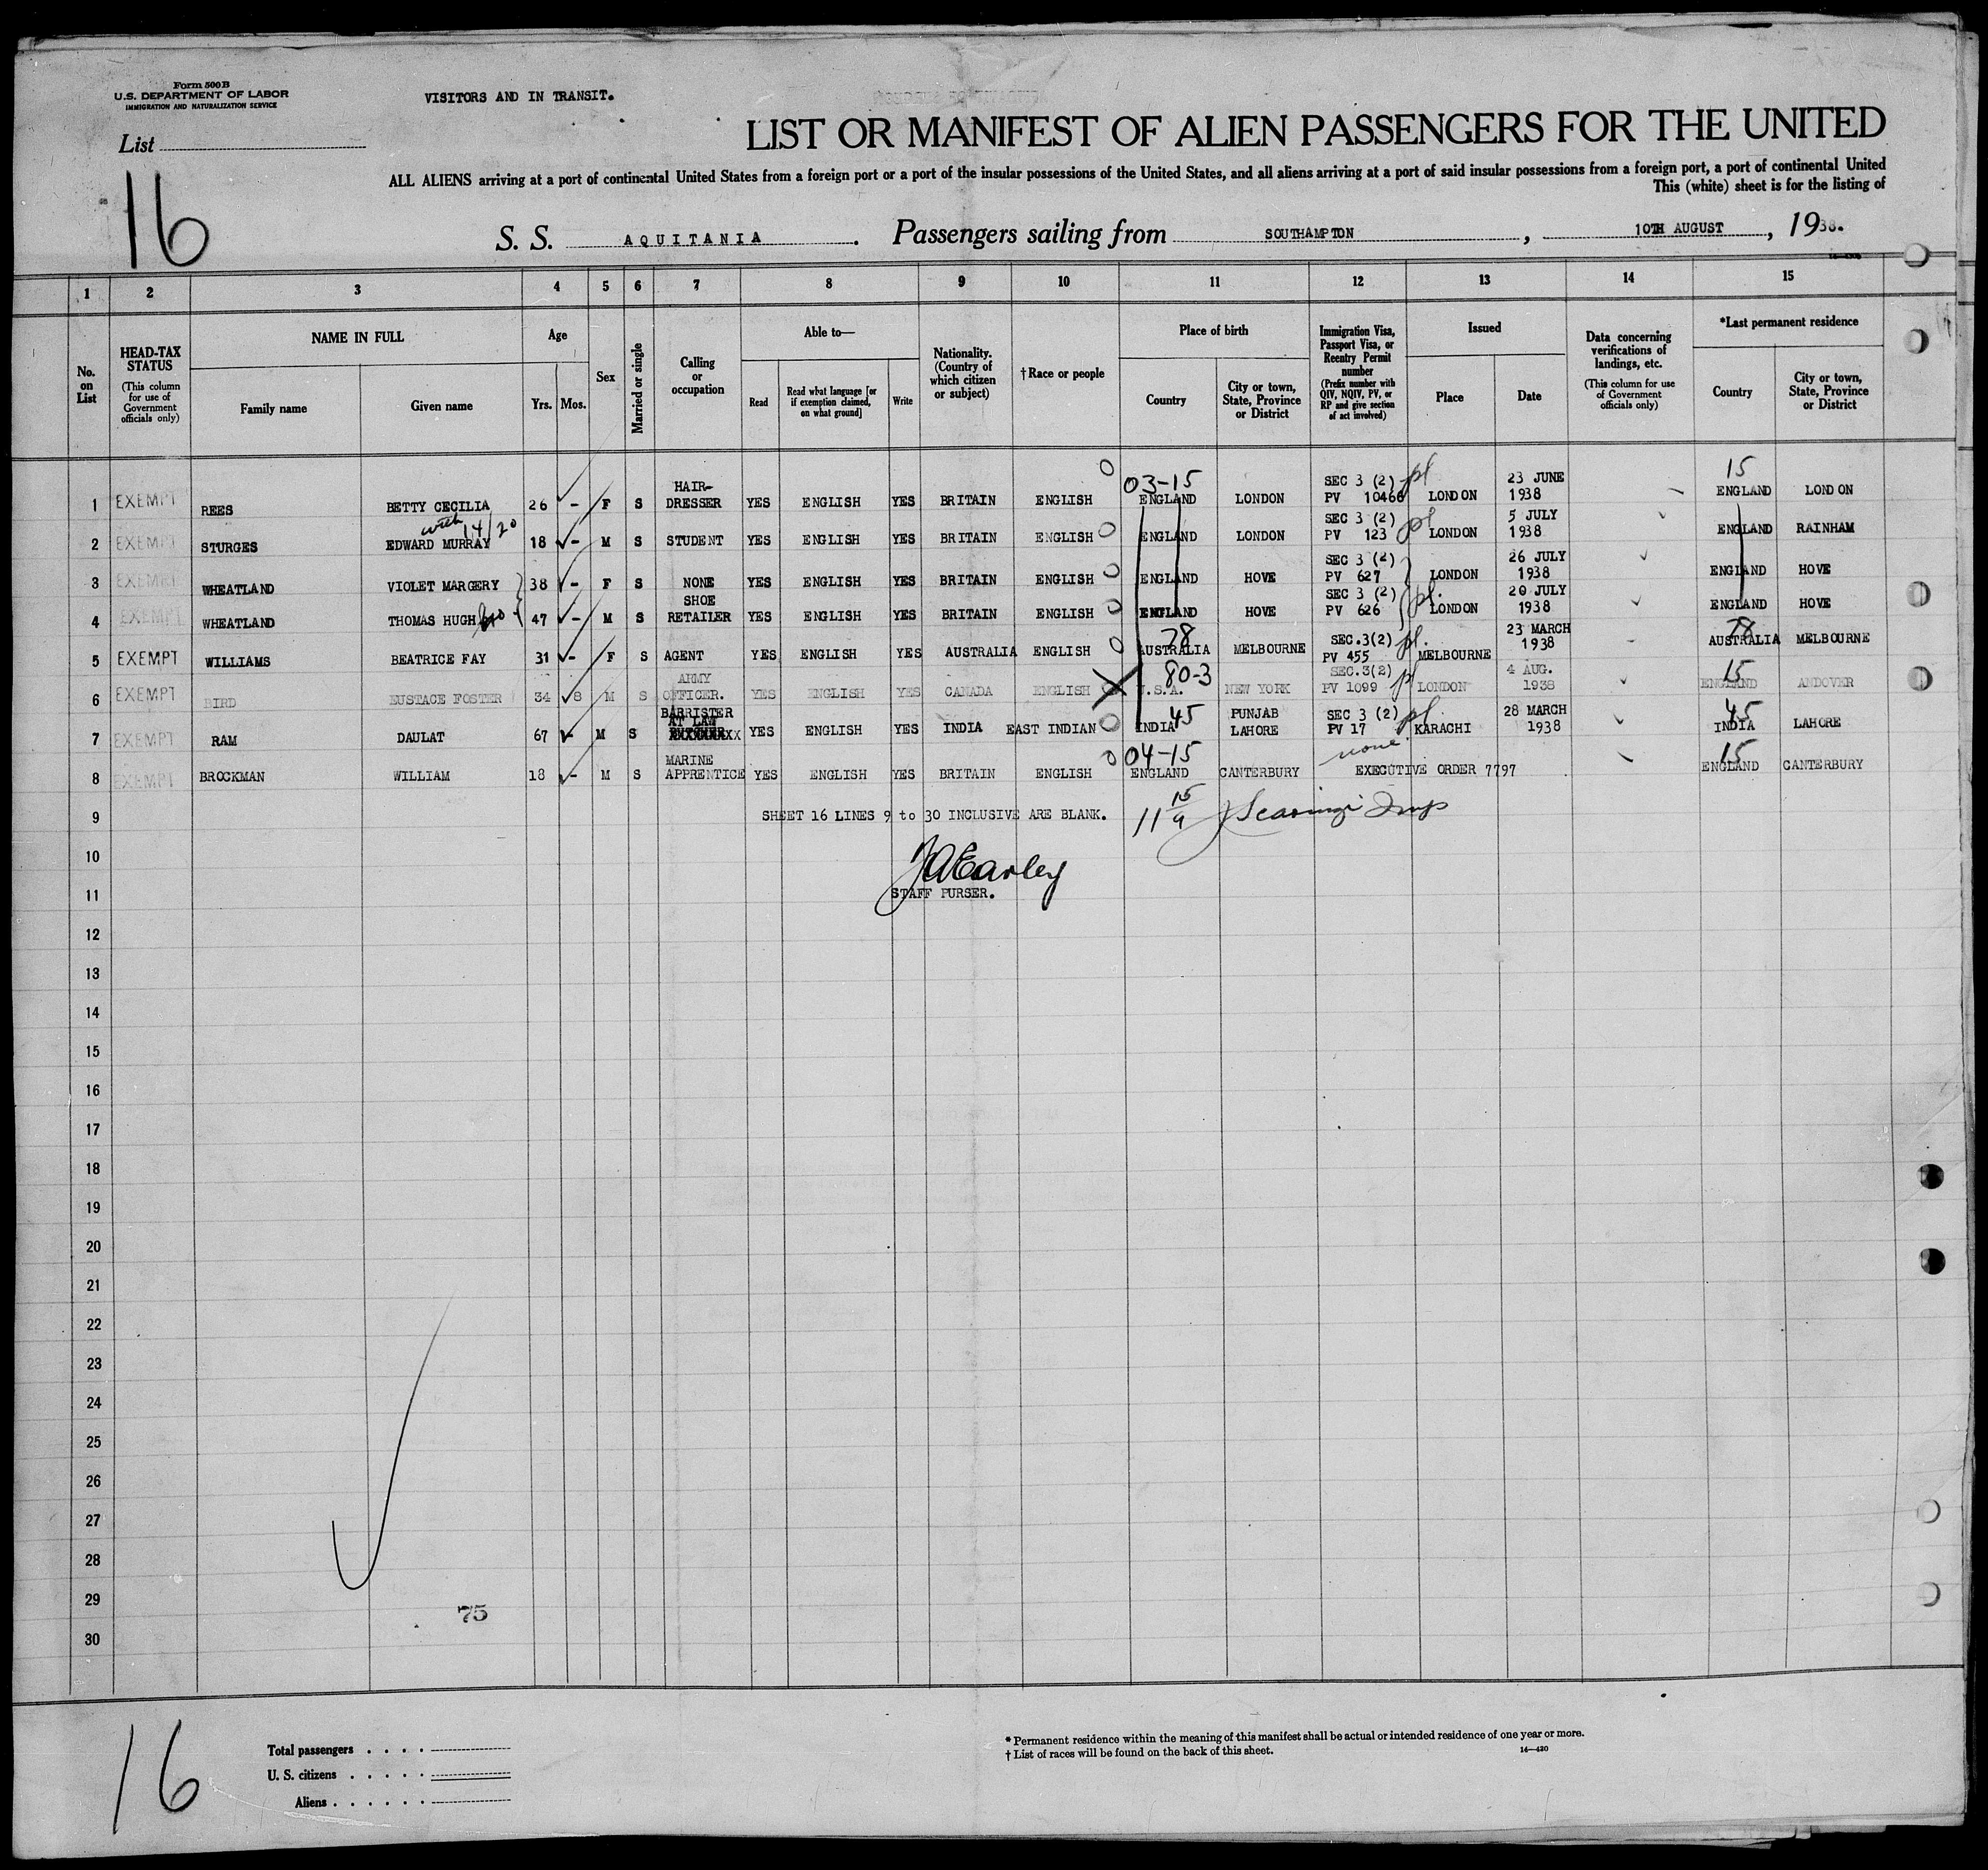 Form 500B
U.S. DEPARTMENT OF LABOR
IMMIGRATION AND NATURALIZATION SERVICE
VISITORS AND IN TRANSIT.
List
16
LIST OR MANIFEST OF ALIEN PASSENGERS FOR THE UNITED
ALL ALIENS arriving at a port of continental United States from a foreign port or a port of the insular possessions of the United States, and all aliens arriving at a port of said insular possessions from a foreign port, a port of continental United
This (white) sheet is for the listing of
S. S. AQUITANIA. Passengers sailing from SOUTHAMPTON, 10TH AUGUST, 1938.
1 2 3 4 5 6 7 8 9 10 11 12 13 14 15
No. on List
HEAD-TAX STATUS
(This column for use of Government officials only)
NAME IN FULL
Family name
Given name
Age
Yrs. Mos.
Sex
Married or single
Calling or occupation
Able to—
Read
Read what language [or if exemption claimed, on what ground]
Write
Nationality. (Country of which citizen or subject)
†Race or people
Place of birth
Country
City or town, State, Province or District
Immigration Visa, Passport Visa, or Reentry Permit number
(Prefix number with QIV, NQIV, PV, or RP and give section of act involved)
Issued
Place
Date
Data concerning verifications of landings, etc.
(This column for use of Government officials only)
*Last permanent residence
Country
City or town, State, Province or District
1 EXEMPT REES BETTY CECILIA 26 - F S HAIR-DRESSER YES ENGLISH YES BRITAIN ENGLISH 03-15 ENGLAND LONDON SEC 3 (2) PV 10466 pl LONDON 23 JUNE 1938 15 ENGLAND LONDON
with 14/20
2 EXEMPT STURGES EDWARD MURRAY 18 - M S STUDENT YES ENGLISH YES BRITAIN ENGLISH ENGLAND LONDON SEC 3 (2) PV 123 pl LONDON 5 JULY 1938 ENGLAND RAINHAM
3 EXEMPT WHEATLAND VIOLET MARGERY 38 - F S NONE YES ENGLISH YES BRITAIN ENGLISH ENGLAND HOVE SEC 3 (2) PV 627 LONDON 26 JULY 1938 ENGLAND HOVE
4 EXEMPT WHEATLAND THOMAS HUGH 47 - M S SHOE RETAILER YES ENGLISH YES BRITAIN ENGLISH ENGLAND HOVE SEC 3 (2) PV 626 pl. LONDON 20 JULY 1938 ENGLAND HOVE
5 EXEMPT WILLIAMS BEATRICE FAY 31 - F S AGENT YES ENGLISH YES AUSTRALIA ENGLISH 78 AUSTRALIA MELBOURNE SEC.3(2) PV 455 pl. MELBOURNE 23 MARCH 1938 78 AUSTRALIA MELBOURNE
6 EXEMPT BIRD EUSTACE FOSTER 34 8 M S ARMY OFFICER. YES ENGLISH YES CANADA ENGLISH 80-3 U.S.A. NEW YORK SEC.3(2) PV 1099 pl LONDON 4 AUG. 1938 15 ENGLAND ANDOVER
7 EXEMPT RAM DAULAT 67 - M S BARRISTER AT LAW YES ENGLISH YES INDIA EAST INDIAN INDIA 45 PUNJAB LAHORE SEC 3 (2) PV 17 pl. KARACHI 28 MARCH 1938 45 INDIA LAHORE
8 EXEMPT BROCKMAN WILLIAM 18 - M S MARINE APPRENTICE YES ENGLISH YES BRITAIN ENGLISH 04-15 ENGLAND CANTERBURY none EXECUTIVE ORDER 7797 15 ENGLAND CANTERBURY
9 SHEET 16 LINES 9 to 30 INCLUSIVE ARE BLANK. 11 15/9
10 JAEarley
11 STAFF PURSER.
12
13
14
15
16
17
18
19
20
21
22
23
24
25
26
27
28
29
75
30
16
Total passengers
U. S. citizens
Aliens
* Permanent residence within the meaning of this manifest shall be actual or intended residence of one year or more.
† List of races will be found on the back of this sheet.
14—420